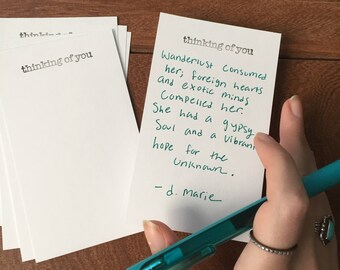 thinking of you
thinking of you
thinking of you
Wanderlust consumed
her; foreign hearts
and exotic minds
compelled her.
She had a gypsy
Soul and a vibrant
hope for the
unknown.
- d. marie